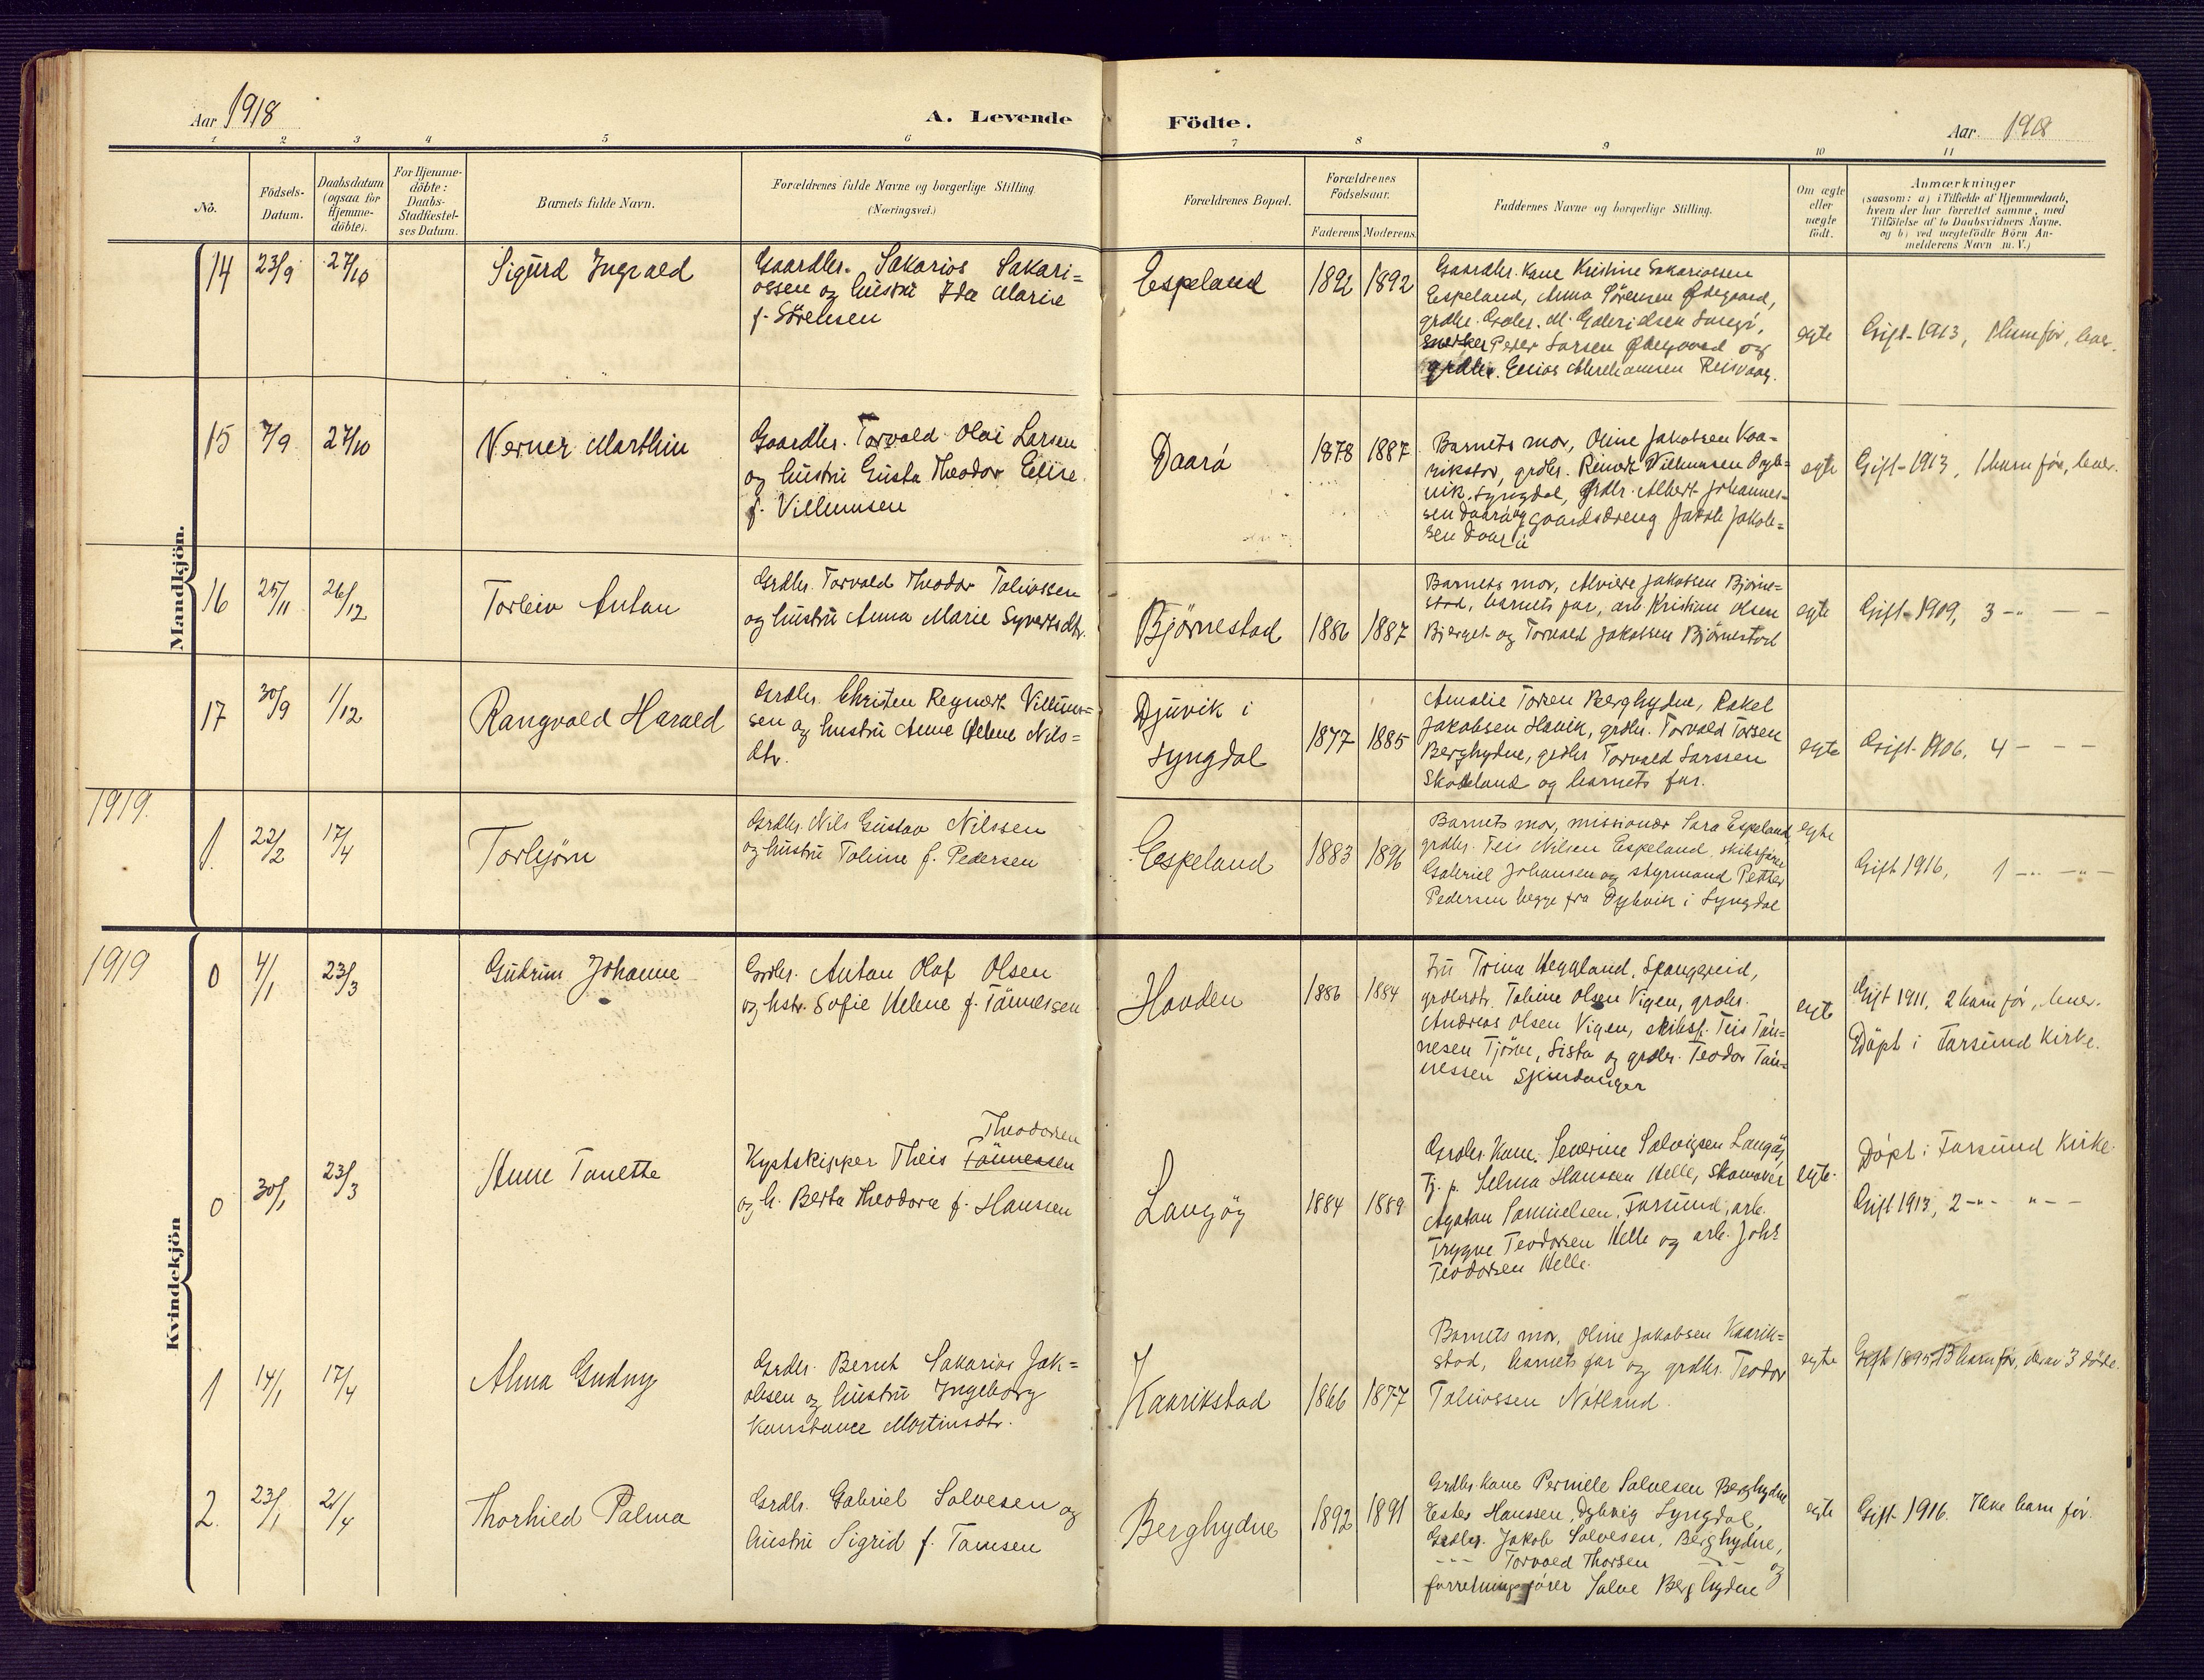 Aar 1918
A. Levende Födte.
Aar 1918
1 2 3 4 5 6 7 8 9 10 11
No.
Födsels-
Datum.
Daabsdatum
(ogsaa for
Hjemme-
döbte).
For Hjemme-
döbte:
Daabs-
Stadfæstel-
ses Datum.
Barnets fulde Navn.
Forældrenes fulde Navne og borgerlige Stilling
(Næringsvei.)
Forældrenes Bopæl.
Forældrenes
Födselsaar.
Faderens Moderens
Faddernes Navne og borgerlige Stilling.
Om ægte
eller
uægte
födt.
Anmærkninger
(saasom: a) i Tilfælde af Hjemmedaab,
hvem der har forrettet samme, med
Tilföielse af to Daabsvidners Navne.
og b) ved uægtefödte Börn An-
melderens Navn m. V.)
Mandkjön.
14 23/9 27/10
Sigurd Ingvald
Gaardbr. Sakarios Sakari=
ossen og hustru Ida Marie
f. Sörensen
Espeland
1892 1892
Gaardbr. Kone Kristine Sakariossen
Espeland, Anna Sörensen Ødegaard,
Peder Larsen Ødegaard og
grdbr. Elias
egte
Gift 1913, 1 barn för, lever.
15 7/9 27/10
Verner Marthin
Gaardbr. Torvald Olai Larsen
og hustru Gusta Theodor Elise
f. Villumsen
Daarö
1878 1887
Barnets mor, Oline Jakobsen Kaa=
rikstad, grdbr. Reinert Villumsen Dyb=
vik Lyngdal, Grdbr. Albert Johannes=
sen Daarö og gaardsdreng Jakob Jakob=
sen Daarö
egte
Gift 1913, 1 barn för, lever.
16 25/11 26/12
Torleiv Anton
Grdbr. Torvald Theodor Tobiassen
og hustru Anna Marie Syvertsdtr.
Björnestad
1886 1887
Barnets mor, Alvilde Jakobsen Björne=
stad, barnets far, arb. Kristian Olsen
Bjerget og Torvald Jakobsen Björnestad
egte
Gift 1909, 3 -"- — —
17 30/9 1/12
Rangvald Harald
Grdbr. Christen Regnert Villum=
sen og hustru Anne Helene Nils=
dtr.
Djuvik i
Lyngdal
1877 1885
Amalie Torsen Berghydne, Rakel
Jakobsen Havik, grdbr. Torvald Torsen
Berghydne, grdbr Torvald Larssen
Skodeland og barnets far.
egte
Gift 1906, 4 — — —
1919.
1. 22/2 17/4
Torbjörn
Grdbr. Nils Gustav Nilssen
og hustru Tobine f. Pedersen
Espeland
1883 1896
Barnets mor, missionær Sara Espeland
grdbr. Teis Nilsen Espeland, skibsförer
Gabriel Johansen og styrmand Petter
Pedersen begge fra Dybvik i Lyngdal
egte
Gift 1916, 1 -"- -"-
1919
Kvindekjön
0 4/1 23/3
Gudrun Johanne
Grdbr. Anton Olaf Olsen
og hstr. Sofie Helene f. Tönnessen
Hovden
1886 1884
Fru Trina Heggland, Spangereid,
grdbrdtr. Tobine Olsen Vigen, grdbr.
Andreas Olsen Vigen, skibsf. Teis Tön=
nesen Tjörve, Lista og grdbr. Teodor Tön=
nessen
egte
Gift 1911, 2 barn för, lever.
Döpt i Farsund Kirke.
0 30/1 23/3
Anne Tonette
Theodorsen
Kystskipper Theis Tönnessen
og h. Berta Theodora f. Hanssen
Langöy
1884 1889
Grdbr. Kone Severine Salvigsen Langöy
Tj. p. Selma Hanssen Helle, Skomaker
Agaton Samuelsen, Farsund, arb.
Trygve Teodorsen Helle og arb. Johs
Teodorsen Helle.
egte
Döpt i Farsund Kirke
Gift 1913, 2 -"- "— —
1 14/1 17/4
Alma Gudny
Grdbr. Bernt Sakarias Jak=
obsen og hustru Ingeborg
Konstance Martinsdtr.
Kaarikstad
1866 1877
Barnets mor, Oline Jakobsen Kaarik=
stad, barnets far og grdbr. Teodor
Tobiassen Nötland
egte
Gift 1895, 13 barn för, derav 3 döde.
2. 23/1 21/4
Thorhild Palma
Grdbr. Gabriel Salvesen og
hustru Sigrid f. Tamsen
Berghydne
1892 1891
Grdbr Kone Pernille Salvesen Berghydne
Ester Hanssen, Dybvig Lyngdal,
Grdbr. Jakob Salvesen, Berghydne,
--- Torvald Thorsen — — og
forretningsförer Salve Berghydne
egte
Gift 1916. Ikke barn för.